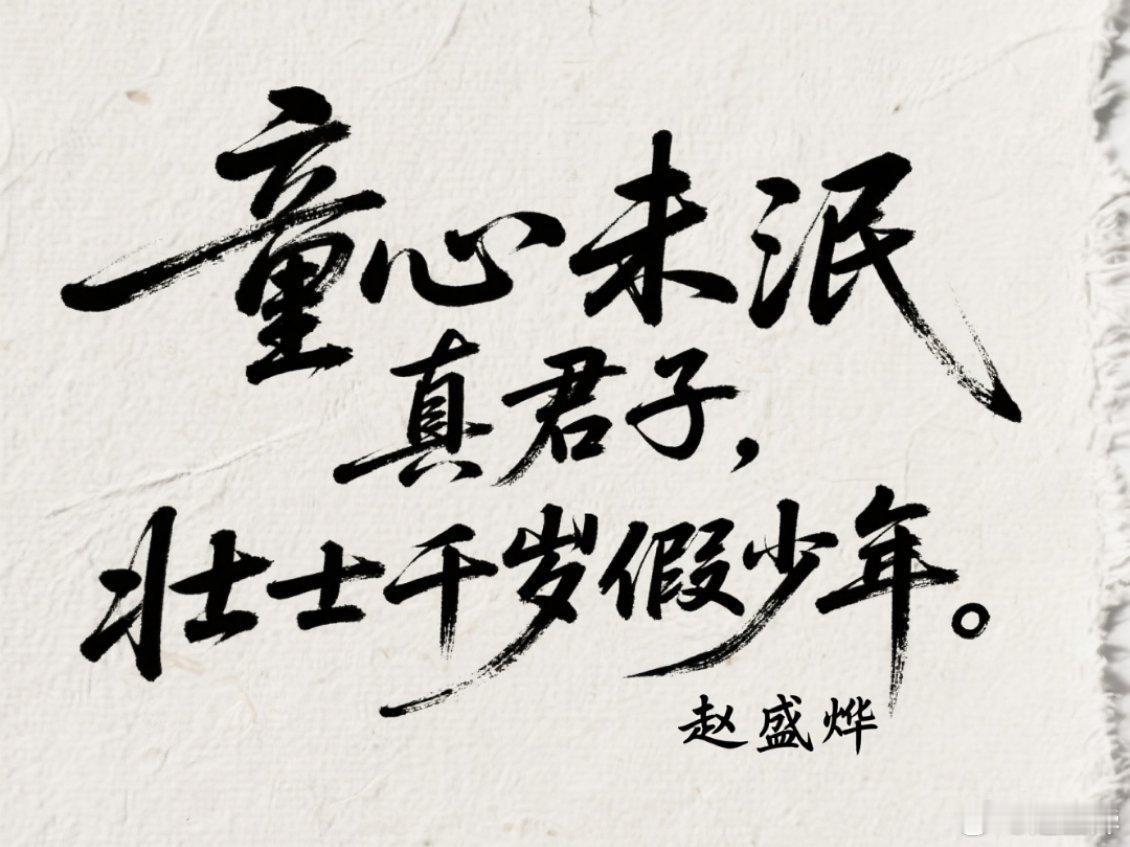 童心未泯
真君子，
壮士千岁假少年。
赵盛烨